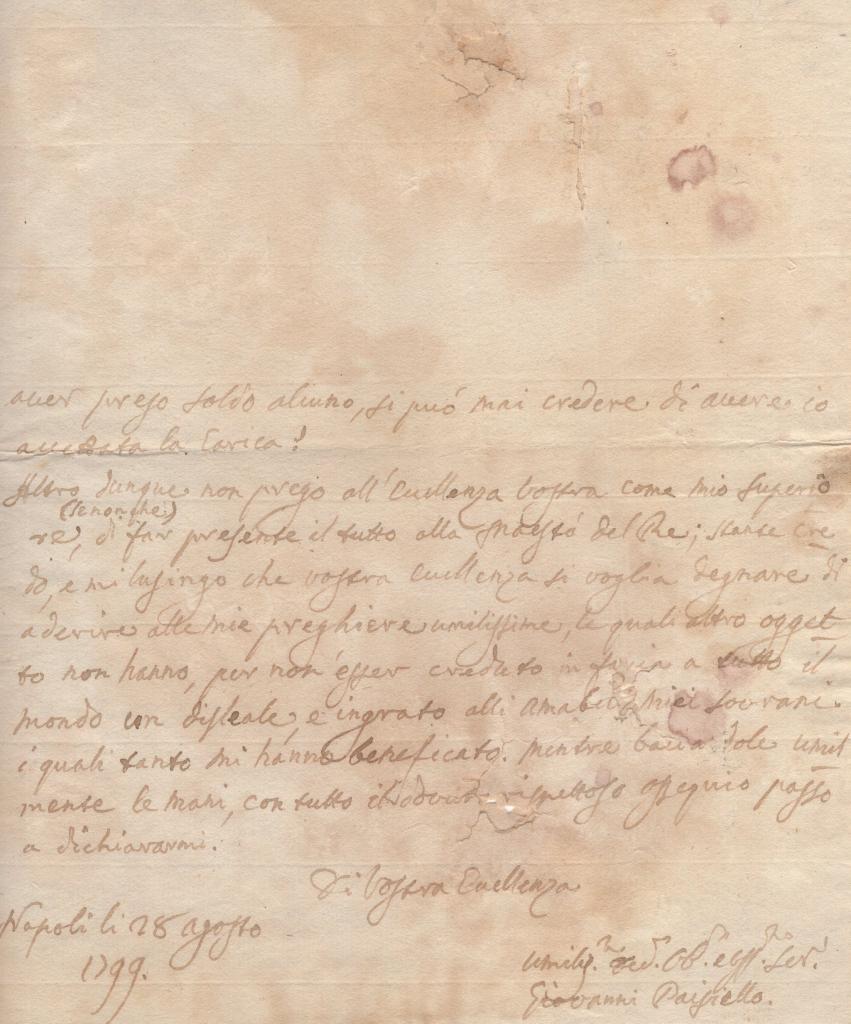 aver preso soldo alcuno, si può mai credere di avere io
accettata la Carica?
Altro dunque non prego all'Eccellenza Vostra come mio Superio
(senonche)
re, di far presente il tutto alla Maestà del Re; stante cre
do, e mi lusingo che Vostra Eccellenza si voglia degnare di
aderire alle mie preghiere umilissime, le quali altroogget
to non hanno, per non esser creduto in faccia a tutto il
mondo un disleale, e ingrato alli amabili miei Sovrani.
i quali tanto mi hanno beneficato. mentre baciandole umil
mente le mani, con tutto il dovuto rispettoso ossequio passo
a dichiararmi.
Di Vostra Eccellenza
Napoli li 28 agosto
1799.
umiliss. Ob. Ser.
Giovanni Paisiello.